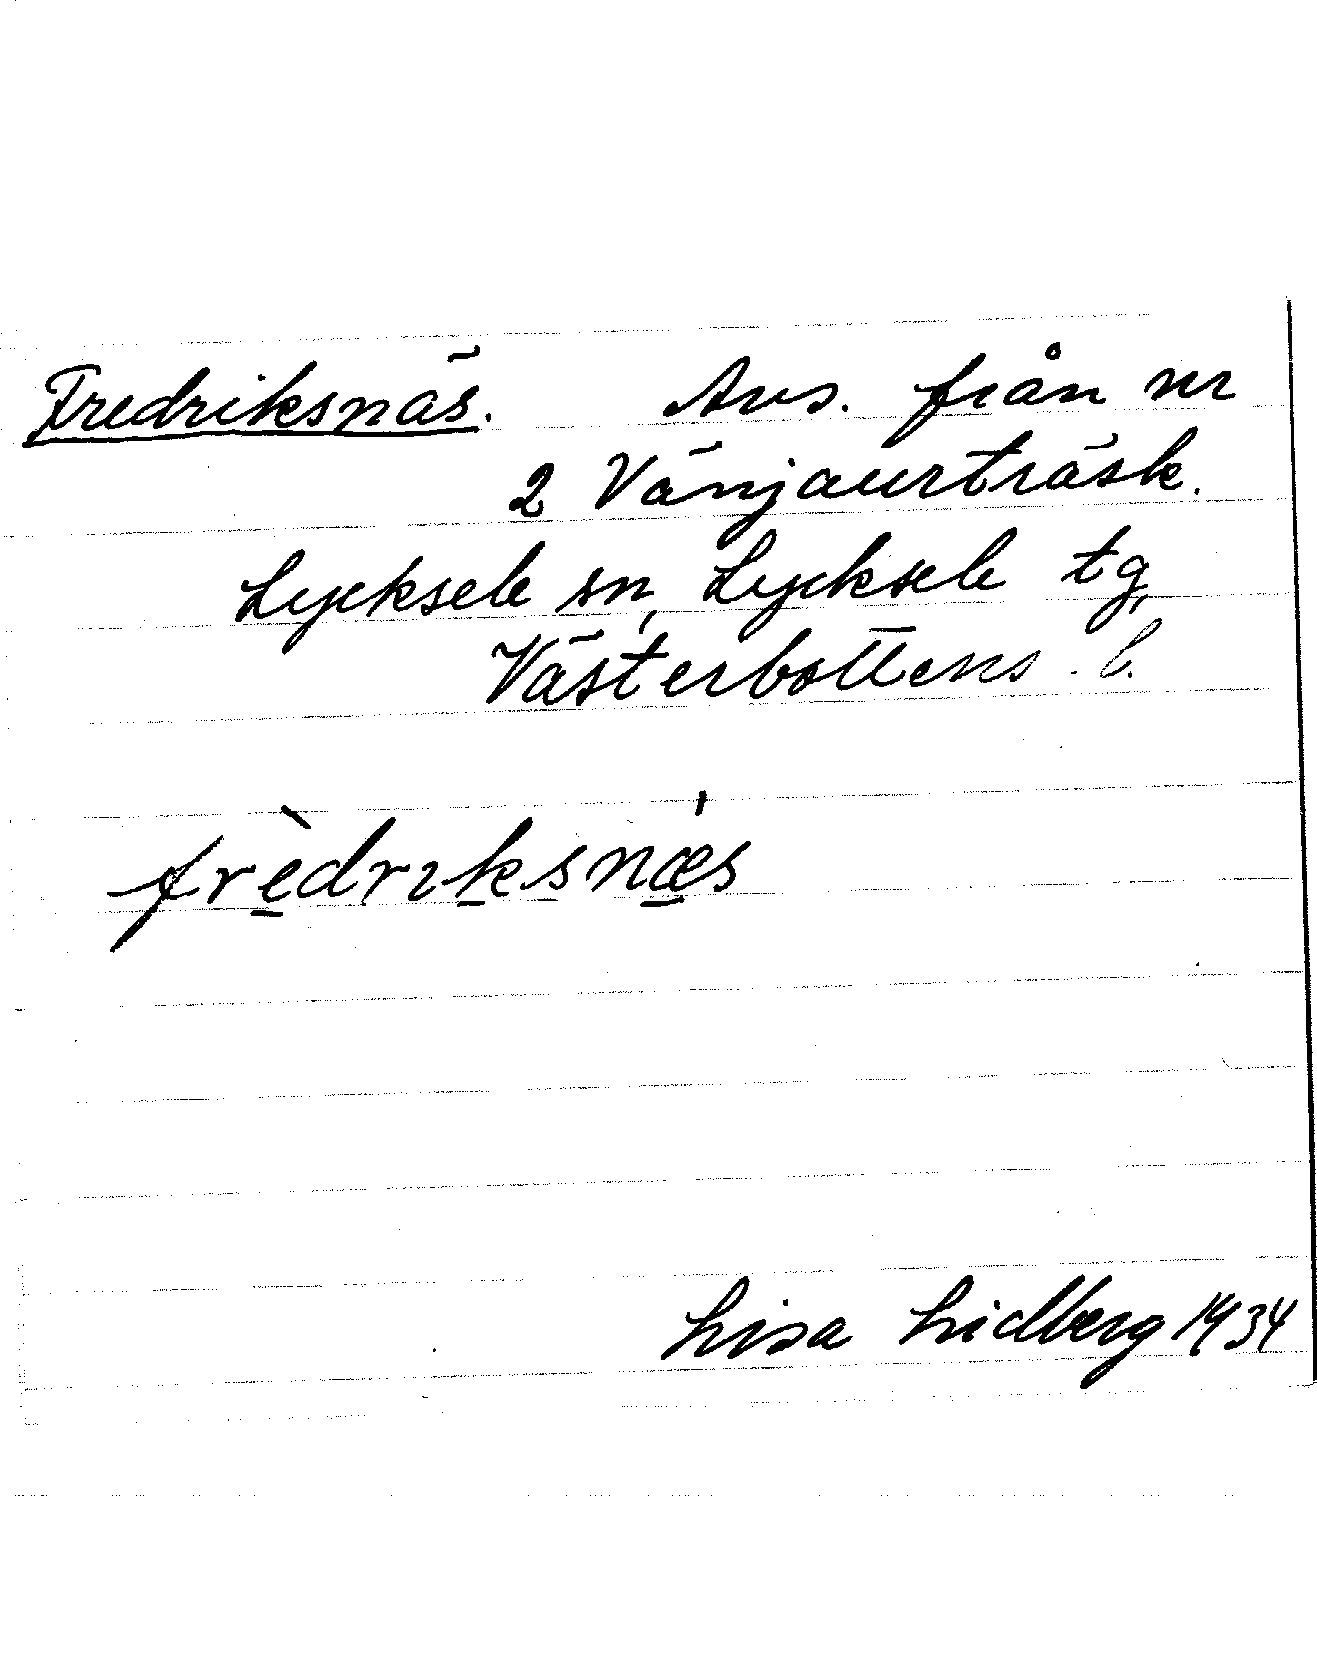 Fredriksnäs. Avs. från nr
2 Vänjaurträsk.
Lycksele sn, Lycksele tg,
Västerbottens l.
frèdrıksnæ̍s
Lisa Lidberg 1934